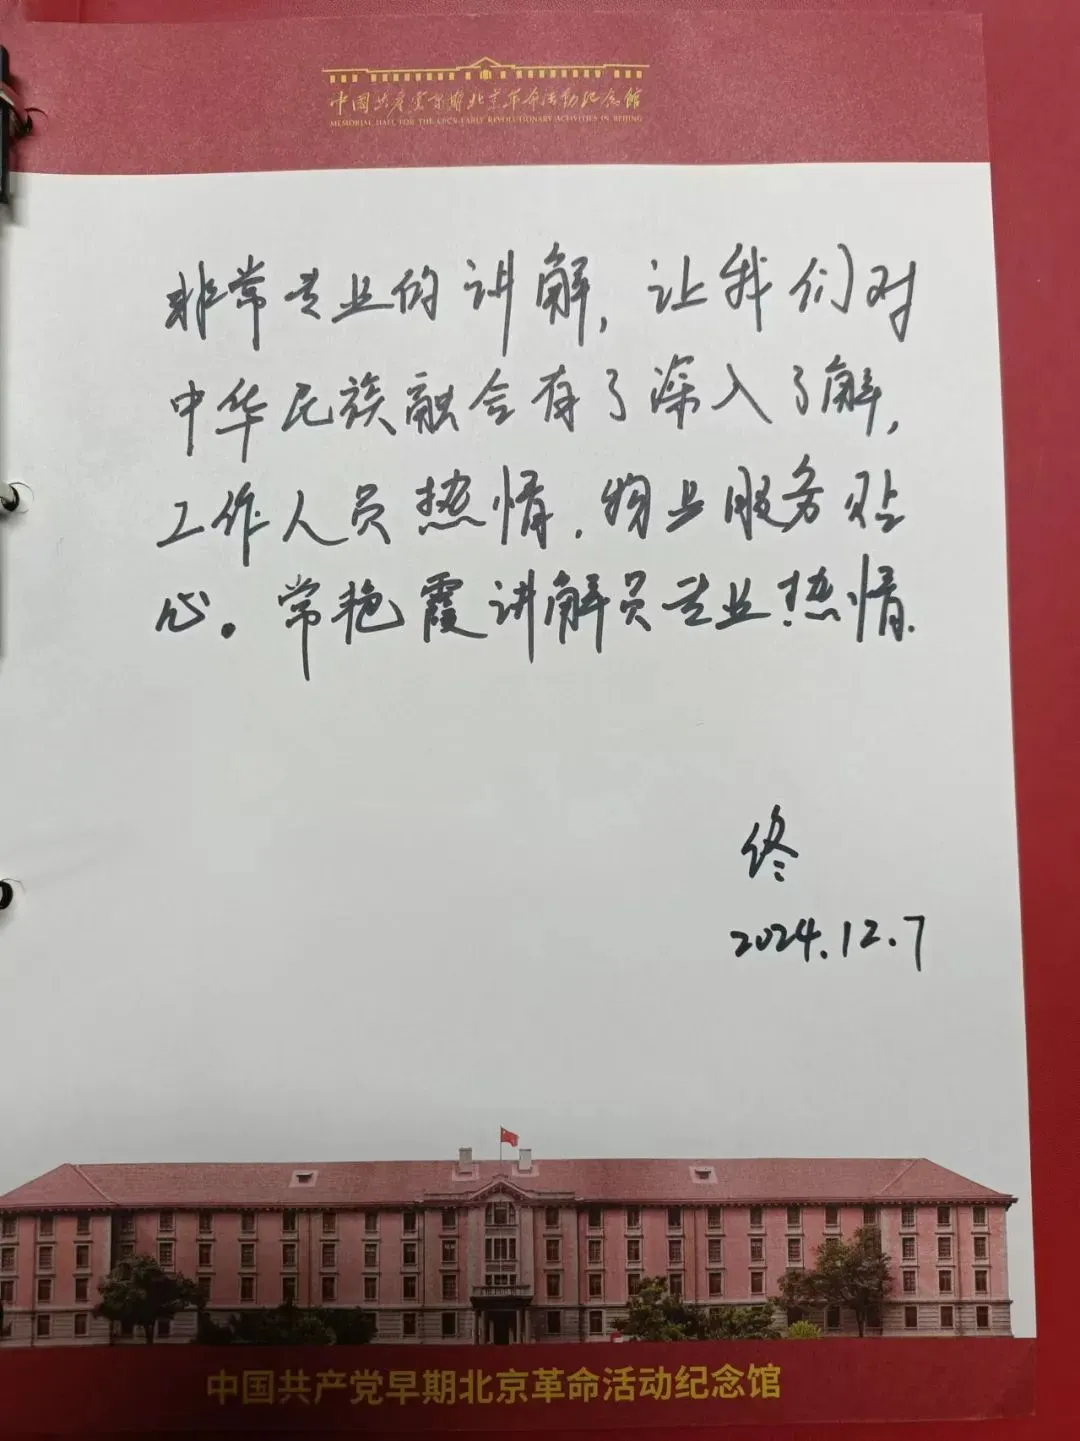 中国共产党早期北京革命活动纪念馆
MEMORIAL HALL FOR THE CPC'S EARLY REVOLUTIONARY ACTIVITIES IN BEIJING
非常专业的讲解,让我们对
中华民族融合有了深入了解,
工作人员热情.物业服务贴
心。常艳霞讲解员专业热情.
终
2024.12.7
中国共产党早期北京革命活动纪念馆